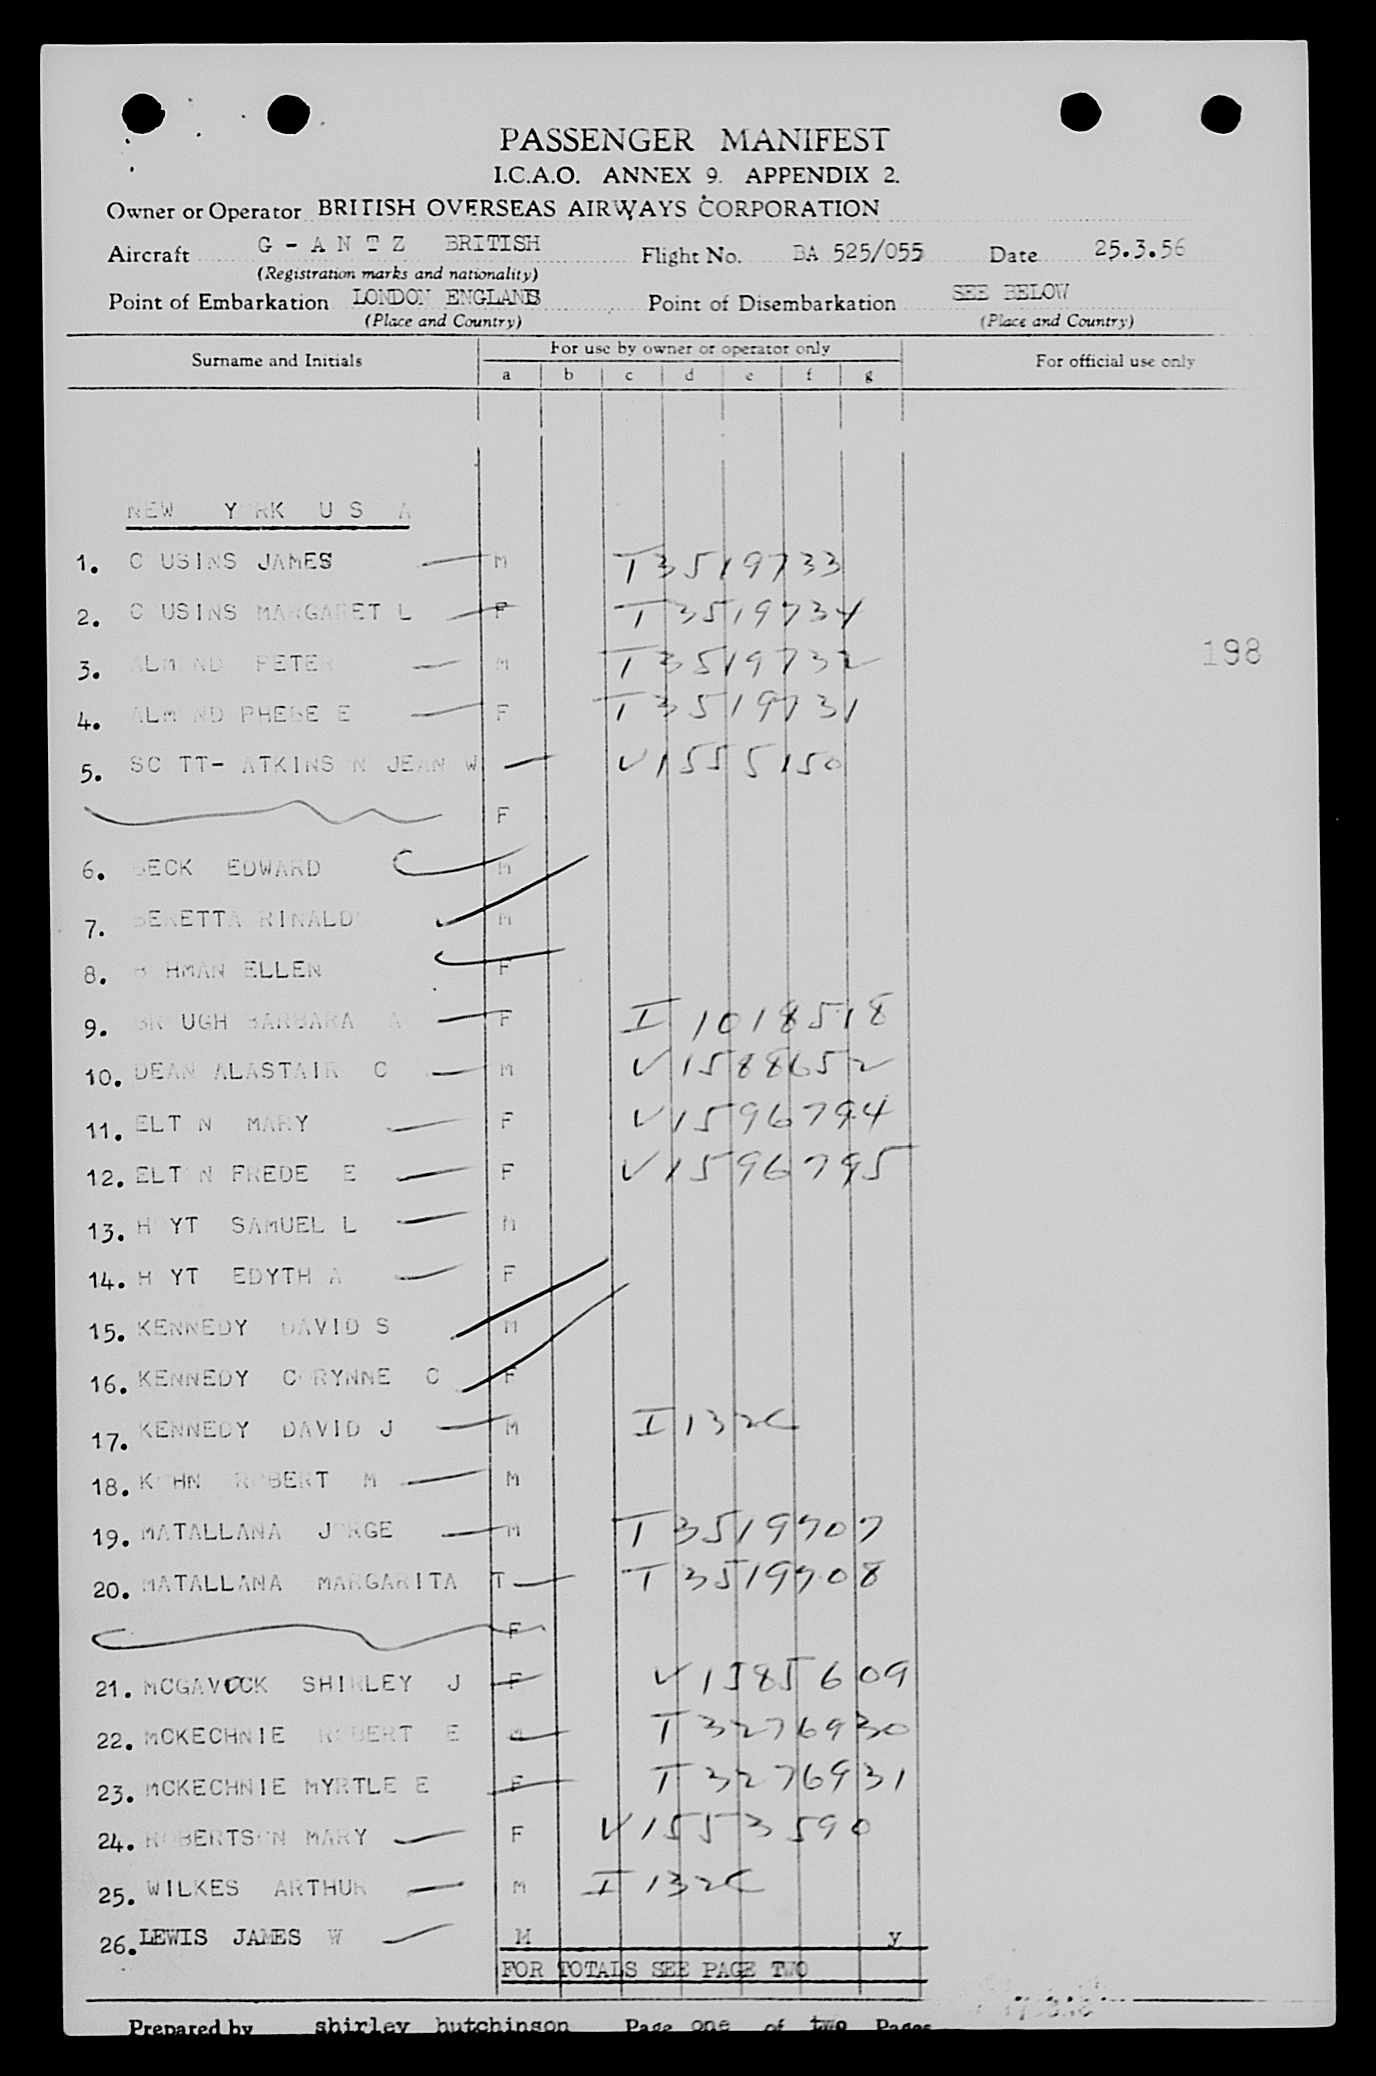 PASSENGER MANIFEST
I.C.A.O. ANNEX 9. APPENDIX 2.
Owner or Operator BRITISH OVERSEAS AIRWAYS CORPORATION
Aircraft G - A N T Z BRITISH Flight No. BA 525/055 Date 25.3.56
(Registration marks and nationality)
Point of Embarkation LONDON ENGLAND Point of Disembarkation SEE BELOW
(Place and Country) (Place and Country)
Surname and Initials For use by owner or operator only For official use only
a b c d e f g
NEW Y RK U S A
1. C USINS JAMES M T3519733
2. C USINS MARGARET L F T3519734
198
3. ALM ND PETER M T3519732
4. ALM ND PHEBE E F T3519731
5. SC TT- ATKINS N JEAN W V1555150
F
6. BECK EDWARD M
7. BERETTA RINALD M
8. B HMAN ELLEN F
9. BR UGH BARBARA A F I1018518
10. DEAN ALASTAIR C M V1588652
11. ELT N MARY F V1596794
12. ELT N FREDE E F V1596795
13. H YT SAMUEL L M
14. H YT EDYTH A F
15. KENNEDY DAVID S M
16. KENNEDY CORYNNE C F
17. KENNEDY DAVID J M I132C
18. KOHN ROBERT M M
19. MATALLANA JORGE M T3519707
20. MATALLANA MARGARITA T T3519708
F
21. MCGAVOCK SHIRLEY J F V1585609
22. MCKECHNIE ROBERT E M T3276930
23. MCKECHNIE MYRTLE E F T3276931
24. ROBERTSON MARY F V1553590
25. WILKES ARTHUR M I132C
26. LEWIS JAMES W M y
FOR TOTALS SEE PAGE TWO
Prepared by shirley hutchinson Page one of two Pages